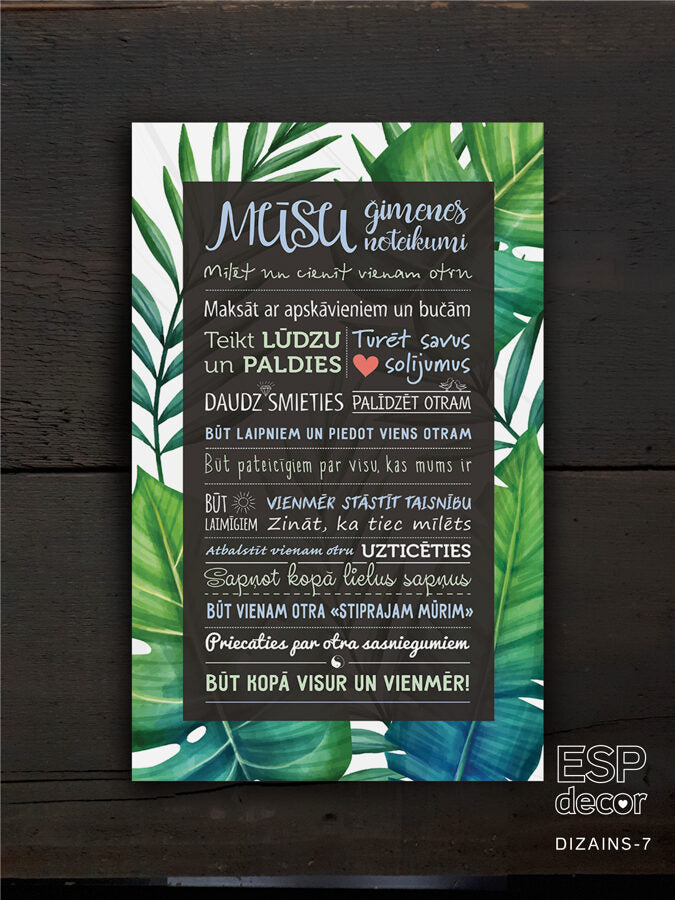 MŪSU ģimenes noteikumi
Mīlēt un cienīt vienam otru
Maksāt ar apskāvieniem un bučām
Teikt LŪDZU
un PALDIES
Turēt savus
solījumus
DAUDZ SMIETIES PALĪDZĒT OTRAM
BŪT LAIPNIEM UN PIEDOT VIENS OTRAM
Būt pateicīgiem par visu, kas mums ir
BŪT
LAIMĪGIEM
VIENMĒR STĀSTĪT TAISNĪBU
Zināt, ka tiec mīlēts
Atbalstīt vienam otru UZTICĒTIES
Sapņot kopā lielus sapņus
BŪT VIENAM OTRA «STIPRAJAM MŪRIM»
Priecāties par otra sasniegumiem
BŪT KOPĀ VISUR UN VIENMĒR!
ESP
decor
DIZAINS-7